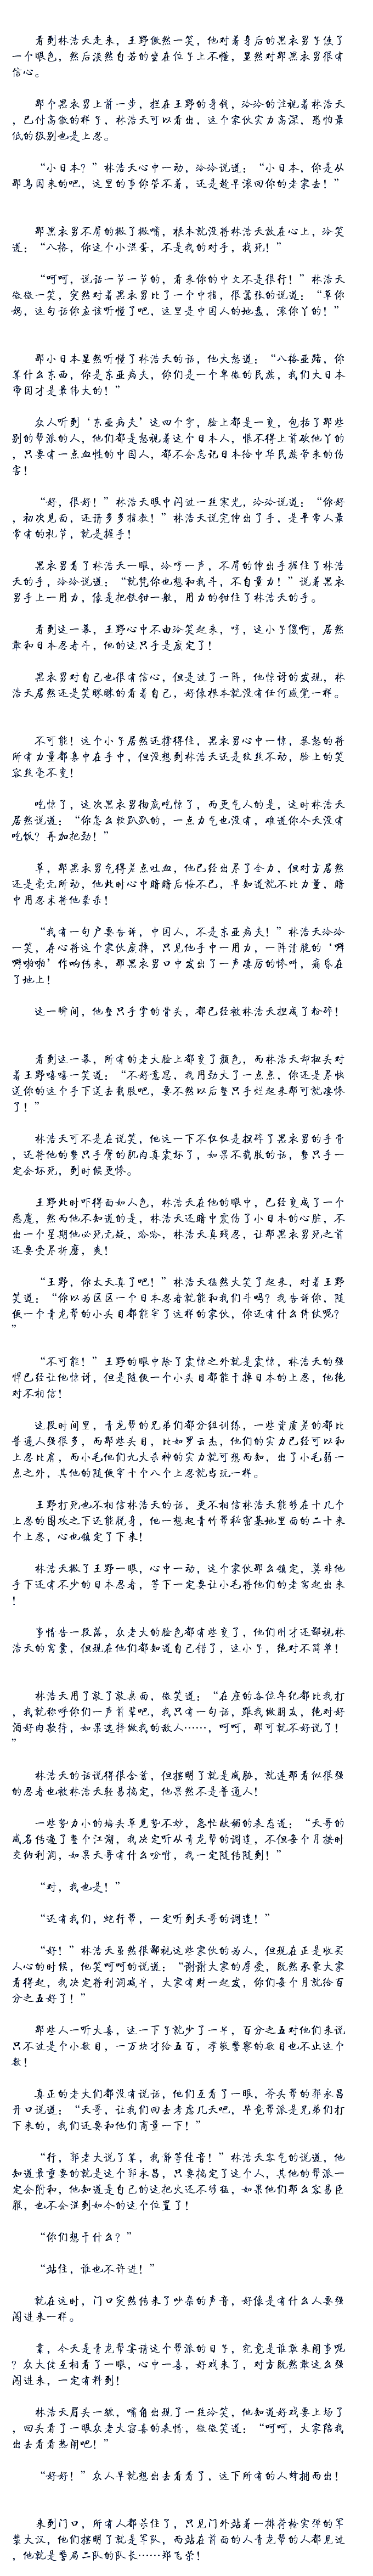 看到林浩天走来，王野傲然一笑，他对着身后的黑衣男子使了
一个眼色，然后淡然自若的坐在位子上不懂，显然对那黑衣男很有
信心。
那个黑衣男上前一步，拦在王野的身钱，冷冷的注视着林浩天
，已付高傲的样子，林浩天可以看出，这个家伙实力高深，恐怕最
低的级别也是上忍。
“小日本？”林浩天心中一动，冷冷说道：“小日本，你是从
那鸟国来的吧，这里的事你管不着，还是趁早滚回你的老家去！”
那黑衣男不屑的撇了撇嘴，根本就没将林浩天放在心上，冷笑
道：“八格，你这个小混蛋，不是我的对手，找死！”
“呵呵，说话一节一节的，看来你的中文不是很行！”林浩天
微微一笑，突然对着黑衣男比了一个中指，很嚣张的说道：“草你
妈，这句话你应该听懂了吧，这里是中国人的地盘，滚你丫的！”
那小日本显然听懂了林浩天的话，他大怒道：“八格亚路，你
算什么东西，你是东亚病夫，你们是一个卑微的民族，我们大日本
帝国才是最伟大的！”
众人听到‘东亚病夫’这四个字，脸上都是一变，包括了那些
别的帮派的人，他们都是怒视着这个日本人，恨不得上前砍他丫的
，只要有一点血性的中国人，都不会忘记日本给中华民族带来的伤
害！
“好，很好！”林浩天眼中闪过一丝寒光，冷冷说道：“你好
，初次见面，还请多多指教！”林浩天说完伸出了手，是平常人最
常有的礼节，就是握手！
黑衣男看了林浩天一眼，冷哼一声，不屑的伸出手握住了林浩
天的手，冷冷说道：“就凭你也想和我斗，不自量力！”说着黑衣
男手上一用力，像是把铁钳一般，用力的钳住了林浩天的手。
看到这一幕，王野心中不由冷笑起来，哼，这小子傻啊，居然
敢和日本忍者斗，他的这只手是废定了！
黑衣男对自己也很有信心，但是过了一阵，他惊讶的发现，林
浩天居然还是笑眯眯的看着自己，好像根本就没有任何感觉一样。
不可能！这个小子居然还撑得住，黑衣男心中一惊，暴怒的将
所有力量都集中在手中，但没想到林浩天还是纹丝不动，脸上的笑
容丝毫不变！
吃惊了，这次黑衣男彻底吃惊了，而更气人的是，这时林浩天
居然说道：“你怎么软趴趴的，一点力气也没有，难道你今天没有
吃饭？再加把劲！”
草，那黑衣男气得差点吐血，他已经出尽了全力，但对方居然
还是毫无所动，他此时心中暗暗后悔不已，早知道就不比力量，暗
中用忍术将他杀杀！
“我有一句户要告诉，中国人，不是东亚病夫！”林浩天冷冷
一笑，在心将这个家伙废掉，只见他手中一用力，一阵清脆的‘啊
啊啪啪’作响传来，那黑衣男口中发出了一声凄厉的惨叫，痛昏在
了地上！
这一瞬间，他整只手掌的骨头，都已经被林浩天捏成了粉碎！
看到这一幕，所有的老大脸上都变了颜色，而林浩天却扭头对
着王野嘻嘻一笑道：“不好意思，我用劲大了一点点，你还是尽快
送你的这个手下送去截肢吧，要不然以后整只手烂起来那可就凄惨
了！”
林浩天可不是在说笑，他这一下不仅仅是捏碎了黑衣男的手骨
，还将他的整只手臂的肌肉真震坏了，如果不截肢的话，整只手一
定会坏死，到时候更惨。
王野此时吓得面如人色，林浩天在他的眼中，已经变成了一个
恶魔，然而他不知道的是，林浩天还暗中震伤了小日本的心脏，不
出一个星期他必死无疑，哈哈，林浩天真残忍，让那黑衣男死之前
还要受尽折磨，爽！
“王野，你太天真了吧！”林浩天猛然大笑了起来，对着王野
笑道：“你以为区区一个日本忍者就能和我们斗吗？我告诉你，随
便一个青龙帮的小头目都能宰了这样的家伙，你还有什么倚仗呢？
”
“不可能！”王野的眼中除了震惊之外就是震惊，林浩天的强
悍已经让他惊讶，但是随便一个小头目都能干掉日本的上忍，他绝
对不相信！
这段时间里，青龙帮的兄弟们都分组训练，一些资质差的都比
普通人强很多，而那些头目，比如罗云杰，他们的实力已经可以和
上忍比肩，而小毛他们九大杀神的实力就可想而知，出了小毛弱一
点之外，其他的随便宰十个八个上忍就当玩一样。
王野打死也不相信林浩天的话，更不相信林浩天能够在十几个
上忍的围攻之下还能脱身，他一想起青竹帮秘密基地里面的二十来
个上忍，心也镇定了下来！
林浩天撇了王野一眼，心中一动，这个家伙那么镇定，莫非他
手下还有不少的日本忍者，等下一定要让小毛将他们的老窝起出来
！
事情告一段落，众老大的脸色都有些变了，他们刚才还鄙视林
浩天的寓囊，但现在他们都知道自己错了，这小子，绝对不简单！
林浩天用了敲了敲桌面，微笑道：“在座的各位年纪都比我打
，我就称呼你们一声前辈吧，我只有一句话，跟我做朋友，绝对好
酒好肉款待，如果选择做我的敌人……，呵呵，那可就不好说了！
”
林浩天的话说得很含蓄，但摆明了就是威胁，就连那看似很强
的忍者也被林浩天轻易搞定，他果然不是普通人！
一些势力小的墙头草见势不妙，急忙献媚的表态道：“天哥的
威名传遍了整个江湖，我决定听从青龙帮的调遣，不但每个月按时
交纳利润，如果天哥有什么吩咐，我一定随传随到！”
“对，我也是！”
“还有我们，蛇行帮，一定听到天哥的调遣！”
“好！”林浩天虽然很鄙视这些家伙的为人，但现在正是收买
人心的时候，他笑呵呵的说道：“谢谢大家的厚爱，既然承蒙大家
看得起，我决定将利润减半，大家有财一起发，你们每个月就给百
分之五好了！”
那些人一听大喜，这一下子就少了一半，百分之五对他们来说
只不过是个小数目，一万块才给五百，孝敬警察的数目也不止这个
数！
真正的老大们都没有说话，他们互看了一眼，斧头帮的郭永昌
开口说道：“天哥，让我们回去考虑几天吧，毕竟帮派是兄弟们打
下来的，我们还要和他们商量一下！”
“行，郭老大说了算，我静等佳音！”林浩天客气的说道，他
知道最重要的就是这个郭永昌，只要搞定了这个人，其他的帮派一
定会附和，他知道是自己的这把火还不够猛，如果他们那么容易臣
服，也不会混到如今的这个位置了！
“你们想干什么？”
“站住，谁也不许进！”
就在这时，门口突然传来了吵杂的声音，好像是有什么人要强
闯进来一样。
靠，今天是青龙帮宴请这个帮派的日子，究竟是谁敢来闹事呢
？众大佬互相看了一眼，心中一喜，好戏来了，对方既然敢这么强
闯进来，一定有料到！
林浩天眉头一皱，嘴角出现了一丝冷笑，他知道好戏要上场了
，回头看了一眼众老大窃喜的表情，微微笑道：“呵呵，大家陪我
出去看看热闹吧！”
“好好！”众人早就想出去看看了，这下所有的人蜂拥而出！
来到门口，所有人都呆住了，只见门外站着一排荷枪实弹的军
装大汉，他们摆明了就是军队，而站在前面的人青龙帮的人都见过
，他就是警局二队的队长……郑飞荣！